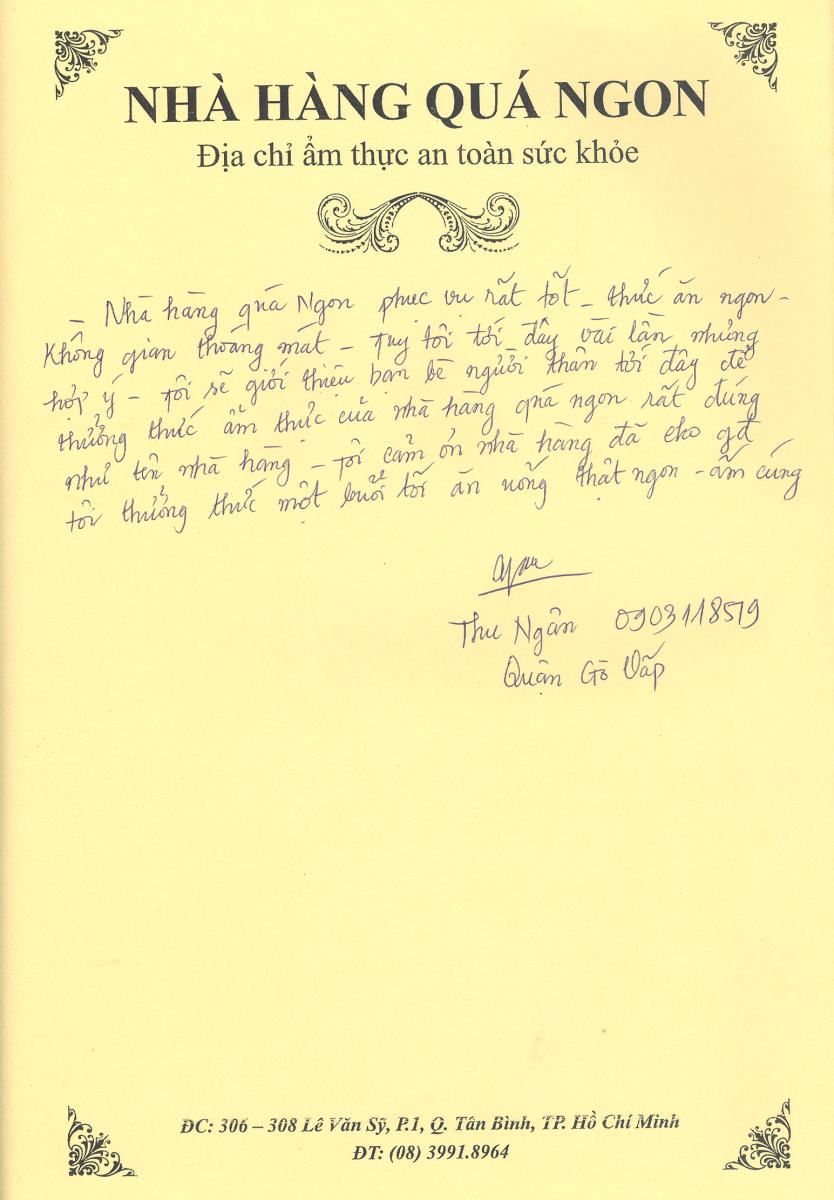 NHÀ HÀNG QUÁ NGON
Địa chỉ ẩm thực an toàn sức khỏe
- Nhà hàng quá Ngon phục vụ rất tốt - thức ăn ngon -
Không gian thoáng mát - Tuy tôi tới đây vài lần nhưng
hợp ý - Tôi sẽ giới thiệu bạn bè người thân tới đây để
thưởng thức ẩm thực của nhà hàng quá ngon rất đúng
như tên nhà hàng - Tôi cảm ơn nhà hàng đã cho gđ
tôi thưởng thức một buổi tối ăn uống thật ngon - ấm cúng
Thu Ngân 0903118519
Quận Gò Vấp
ĐC: 306 – 308 Lê Văn Sỹ, P.1, Q. Tân Bình, TP. Hồ Chí Minh
ĐT: (08) 3991.8964